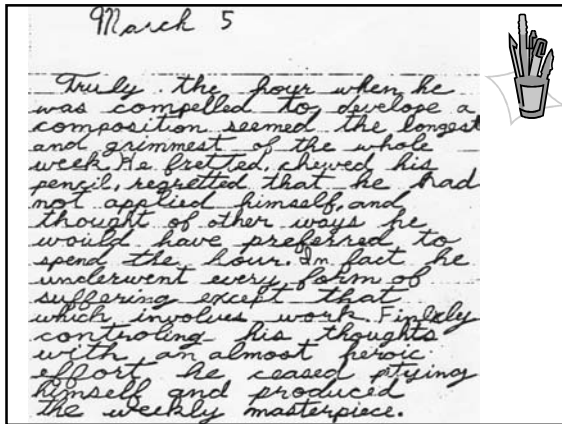 March 5
Truly the hour when he
was compelled to develope a
composition seemed the longest
and grimmest of the whole
week. He fretted, chewed his
pencil, regretted that he had
not applied himself, and
thought of other ways he
would have preferred to
spend the hour. In fact he
underwent every form of
suffering except that
which involves work. Finlly
controling his thoughts
with an almost heroic
effort he ceased ptying
himself and produced
the weekly masterpiece.